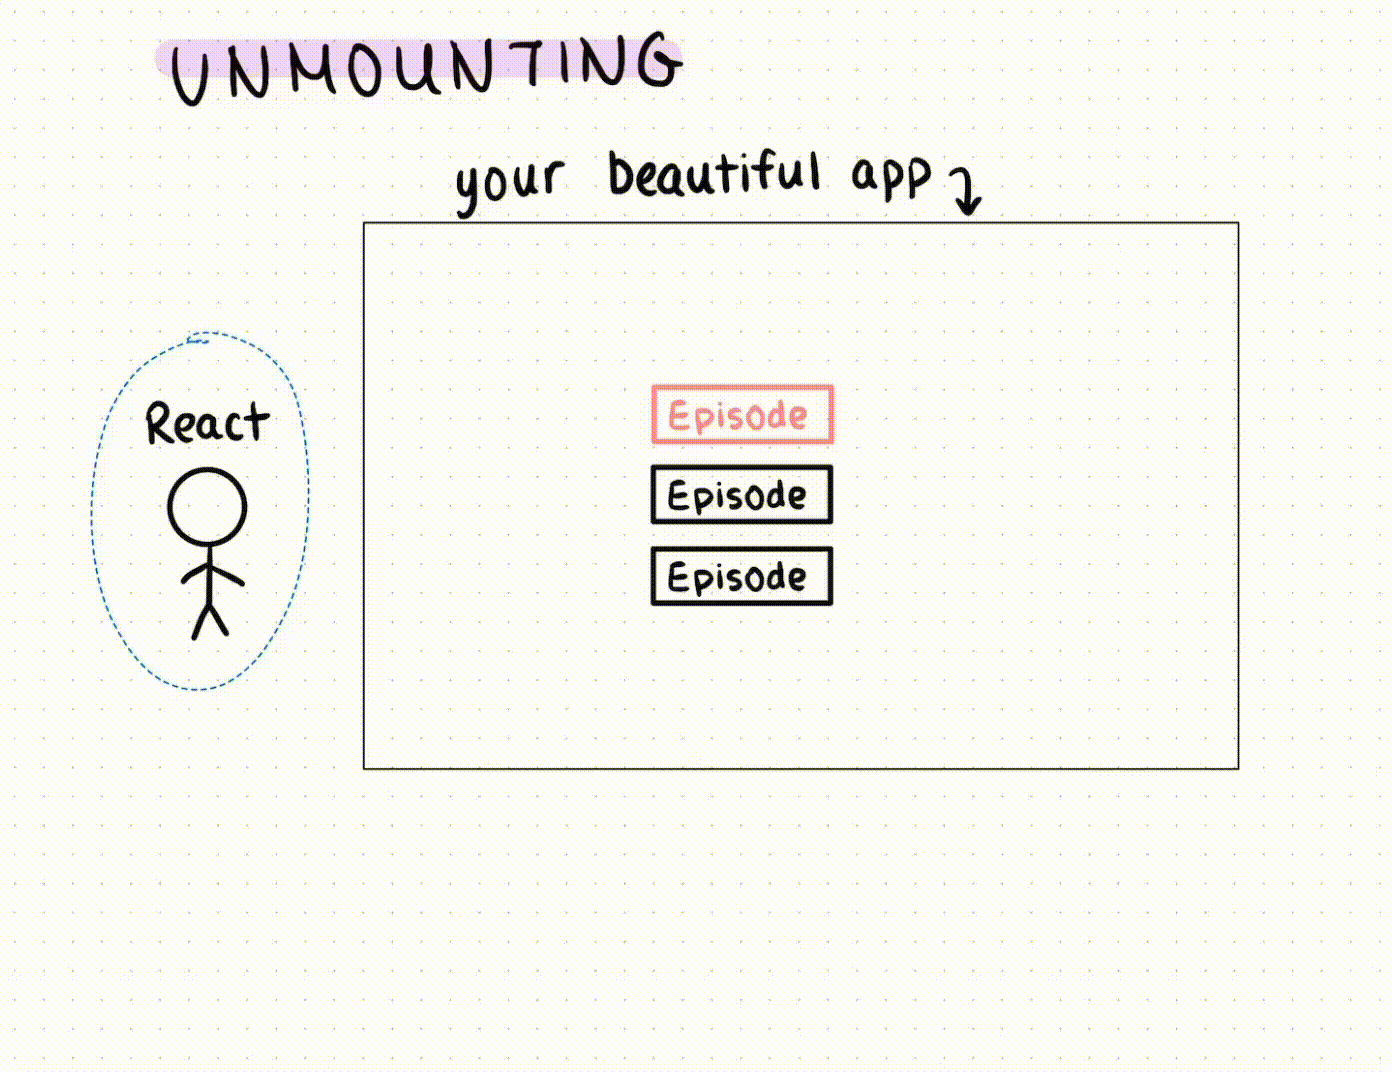 UNMOUNTING
your beautiful app
React
Episode
Episode
Episode